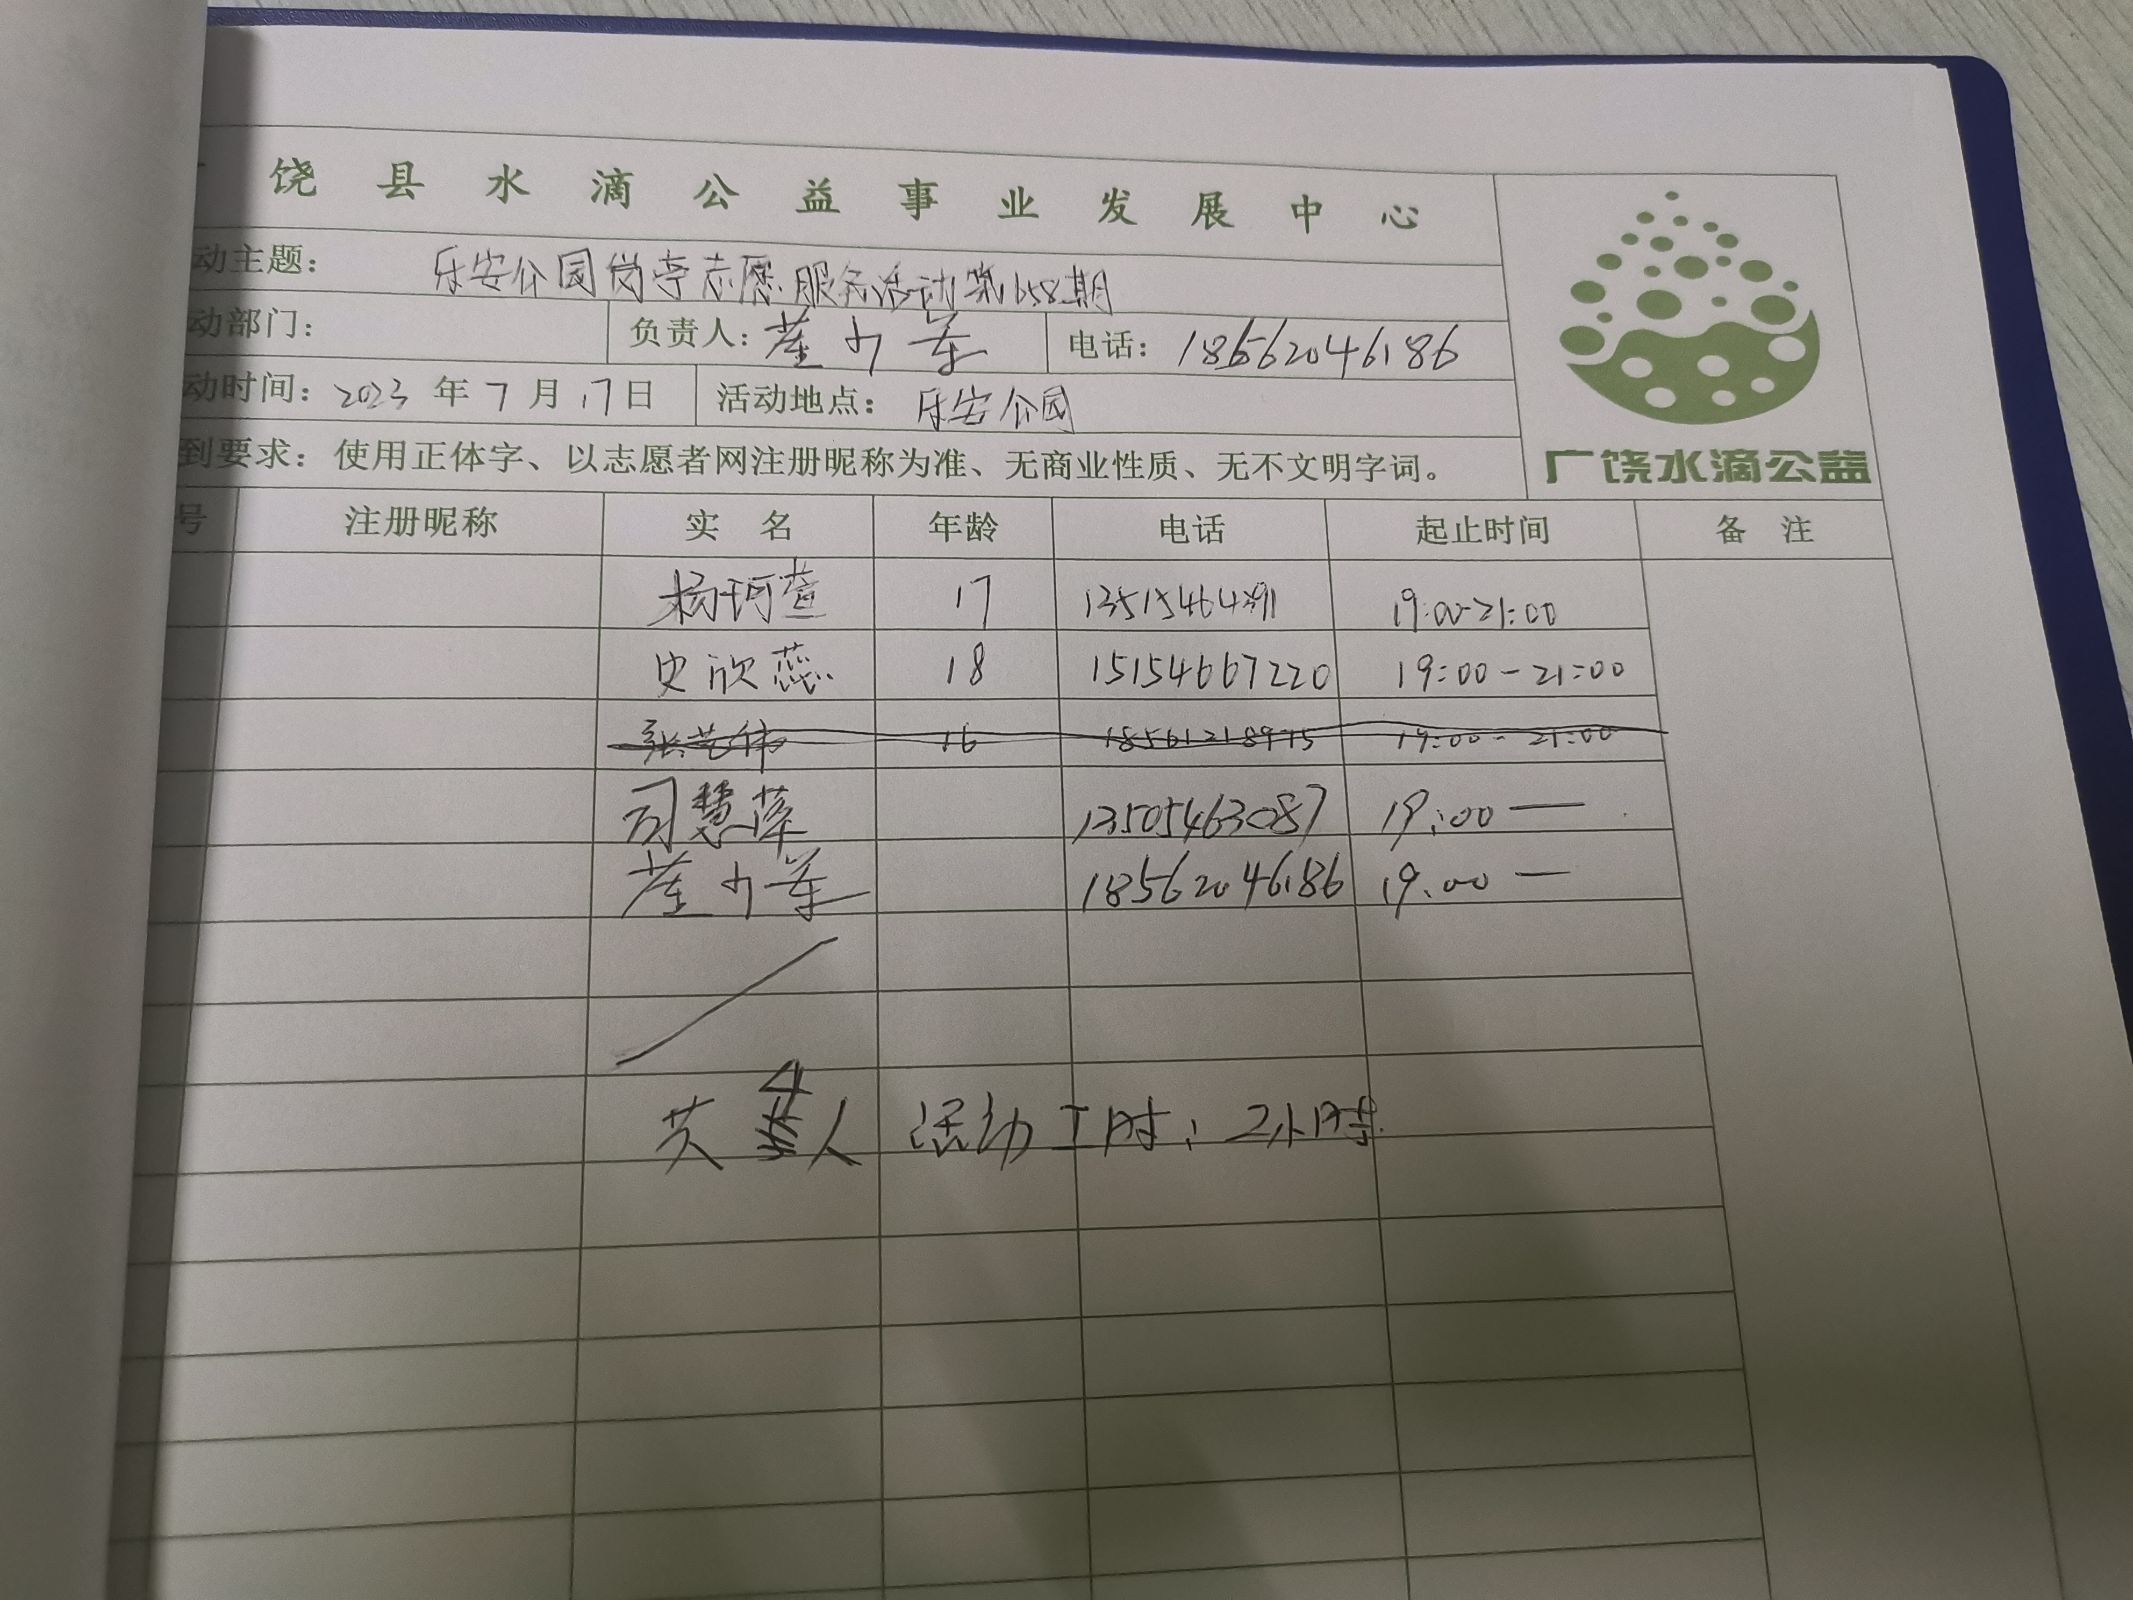 饶县水滴公益事业发展中心
动主题： 乐安公园岗亭志愿服务活动第1658期
动部门： 负责人： 电话：18562046186
动时间：2023年7月17日 活动地点：乐安公园
到要求：使用正体字、以志愿者网注册昵称为准、无商业性质、无不文明字词。
广饶水滴公益
号 注册昵称 实 名 年龄 电话 起止时间 备 注
杨珂萱 17 19:00-21:00
史欣蕊 18 15154667220 19:00-21:00
16 18561218975 19:00-21:00
司慧萍 13505463087 19:00—
18562046186 19:00—
共4人 活动工时：2小时